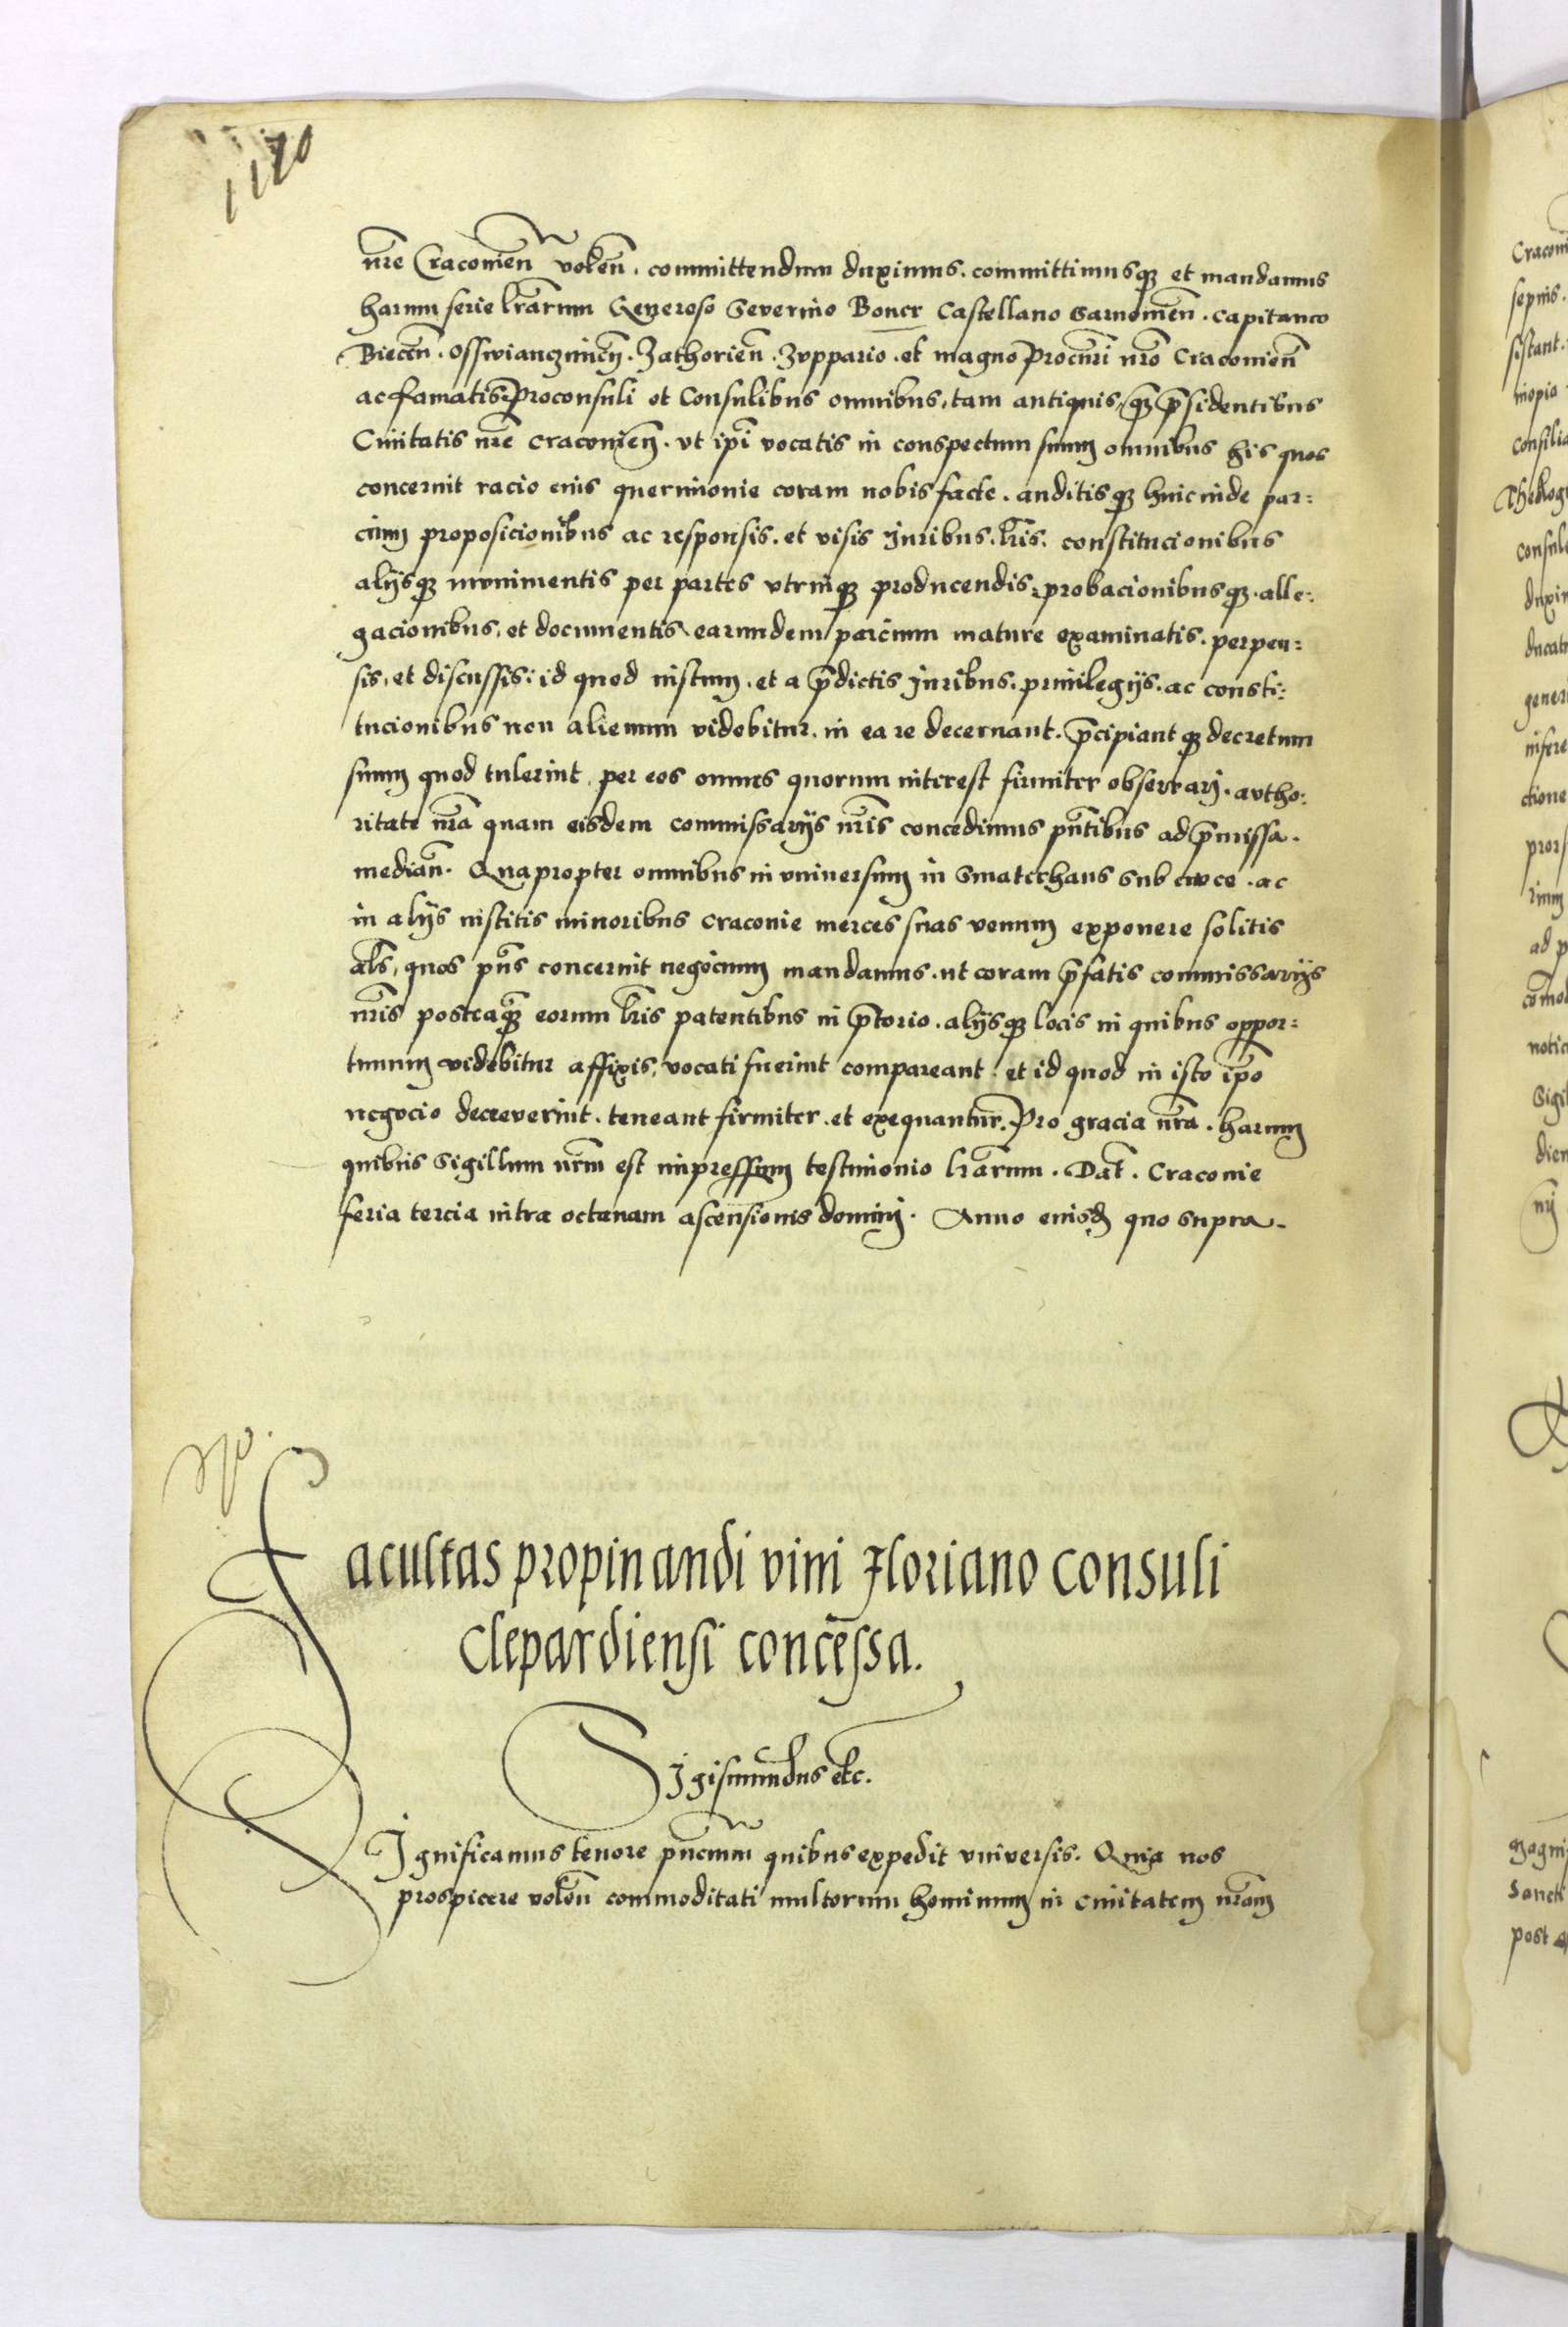 1170
nr̄e Craconien̄ volen̄. committendum duximus. committimusqꝫ et mandamus
harum serie lr̄arum Generoso Severino Boner Castellano Sarnowien̄. Capitaneo
Biecen̄. Osswianczimen̄. Zathorien̄. Zuppario. et magno Procur̄ri nr̄o Craconien̄
ac famatis: Proconsuli et Consulibus omnibus, tam antiquis, qꝫ p̄sidentibus
Civitatis nr̄e Craconien̄. ut ip̄i vocatis in conspectum suum omnibus his quos
concernit racio eius querimonie coram nobis facte. auditisqꝫ hincinde par:
cium proposicionibus ac responsis. et visis Juribus. lr̄is. constitucionibus
alijsqꝫ munimentis per partes utrinqꝫ producendis, probacionibusqꝫ. alle:
gacionibus, et documentis earundem parcium mature examinatis. perpen:
sis, et discussis: id quod iustum. et a p̄dictis Juribus. privilegijs. ac consti:
tucionibus non alienum videbitur. in ea re decernant. p̄cipiantqꝫ decretum
suum quod tulerint per eos omnes quorum interest firmiter observarj. autho:
ritate nr̄a quam eisdem commissarijs nr̄is concedimus pn̄tibus ad p̄missa.
median̄. Quapropter omnibus in universum in Smatrchaus sub cruce. ac
in alijs institis minoribus Craconie merces suas venum exponere solitis
al̄s, quos pn̄s concernit negocium mandamus. ut coram p̄fatis commissarijs
nr̄is posteaqꝫ eorum lr̄is patentibus in p̄torio. alijsqꝫ locis in quibus oppor:
tunum videbitur affixis, vocati fuerint compareant. et id quod in isto ip̄o
negocio decreverint. teneant firmiter. et exequantur. Pro gracia nr̄a. harum
quibus Sigillum nr̄m est impressum testimonio lr̄arum. Dat̄. Craconie
feria tercia intra octavam ascensionis dominj. Anno eiusd̄ quo supra.
Facultas propinandi vini Floriano consuli
Clepardiensi concessa.
Sigismundus etc.
Significamus tenore pn̄cium quibus expedit universis. Quia nos
prospicere volen̄ commoditati multorum hominum in civitatem nr̄am